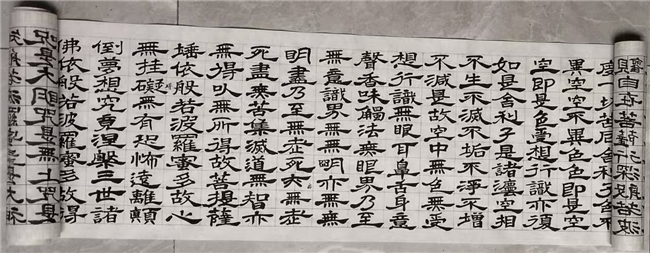 觀自在菩薩行深般若波
度一切苦厄舍利子色不
異空空不異色色即是空
空即是色受想行識亦復
如是舍利子是諸灋空相
不生不滅不垢不淨不增
不減是故空中無色無受
想行識無眼耳鼻舌身意
聲香味觸法無眼界乃至
無意識界無無明亦無無
明盡乃至無老死亦無老
死盡無苦集滅道無智亦
無得以無所得故菩提薩
埵依般若波羅蜜多故心
無挂礙無有恐怖遠離顛
倒夢想究竟涅槃三世諸
佛依般若波羅蜜多故得
咒是大明咒是無上咒是